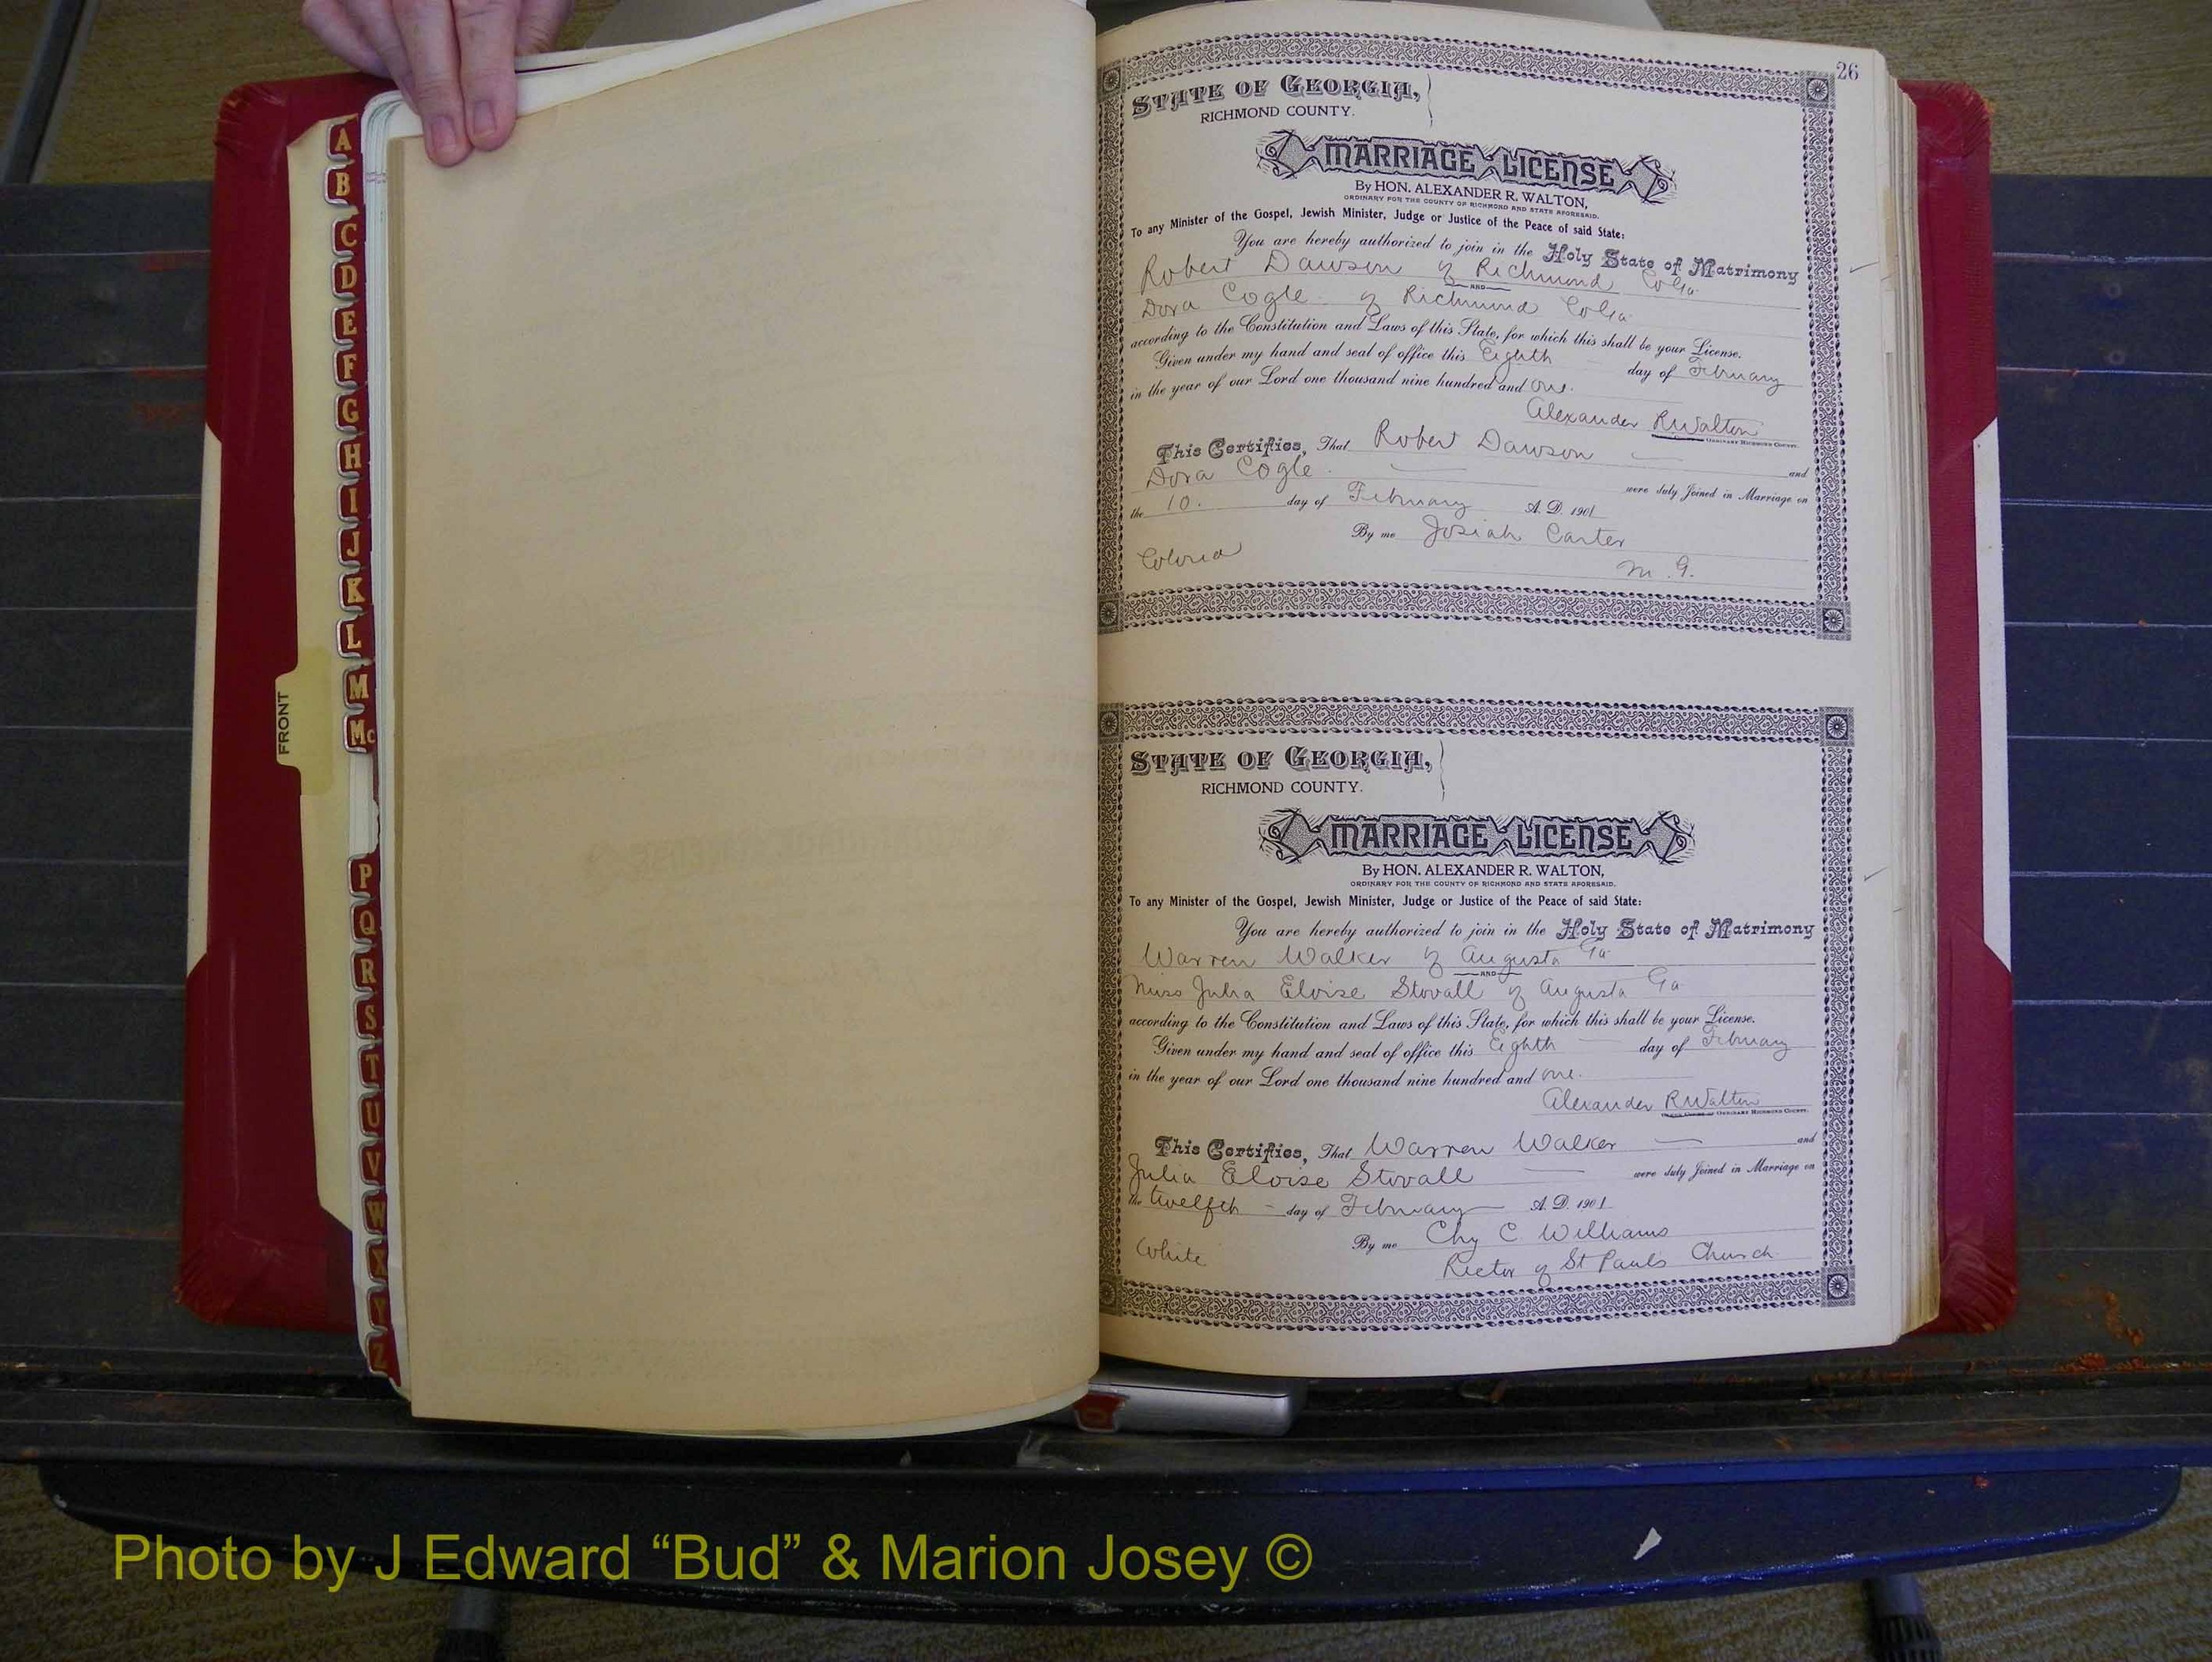 A
B
C
D
E
F
G
H
I
J
K
L
M
Mc
P
Q
R
S
T
U
V
W
X
Y
Z
FRONT
26
STATE OF GEORGIA,
RICHMOND COUNTY.
MARRIAGE LICENSE
By HON. ALEXANDER R. WALTON,
ORDINARY FOR THE COUNTY OF RICHMOND AND STATE AFORESAID.
To any Minister of the Gospel, Jewish Minister, Judge or Justice of the Peace of said State:
You are hereby authorized to join in the Holy State of Matrimony
Robert Dawson of Richmond Co Ga
AND
Dora Cogle of Richmond Co Ga
according to the Constitution and Laws of this State, for which this shall be your License.
Given under my hand and seal of office this Eighth day of February
in the year of our Lord one thousand nine hundred and one.
Alexander R Walton
ORDINARY RICHMOND COUNTY.
This Certifies, That Robert Dawson and
Dora Cogle were duly Joined in Marriage on
the 10. day of February A. D. 1901
By me Josiah Carter
Colored M. G.
STATE OF GEORGIA,
RICHMOND COUNTY.
MARRIAGE LICENSE
By HON. ALEXANDER R. WALTON,
ORDINARY FOR THE COUNTY OF RICHMOND AND STATE AFORESAID.
To any Minister of the Gospel, Jewish Minister, Judge or Justice of the Peace of said State:
You are hereby authorized to join in the Holy State of Matrimony
Warren Walker of Augusta Ga
AND
Miss Julia Eloise Stovall of Augusta Ga
according to the Constitution and Laws of this State, for which this shall be your License.
Given under my hand and seal of office this Eighth day of February
in the year of our Lord one thousand nine hundred and one.
Alexander R Walton
ORDINARY RICHMOND COUNTY.
This Certifies, That Warren Walker and
Julia Eloise Stovall were duly Joined in Marriage on
the twelfth day of February A. D. 1901
By me Chy C. Williams
White Rector of St Paul's Church
Photo by J Edward “Bud” & Marion Josey ©